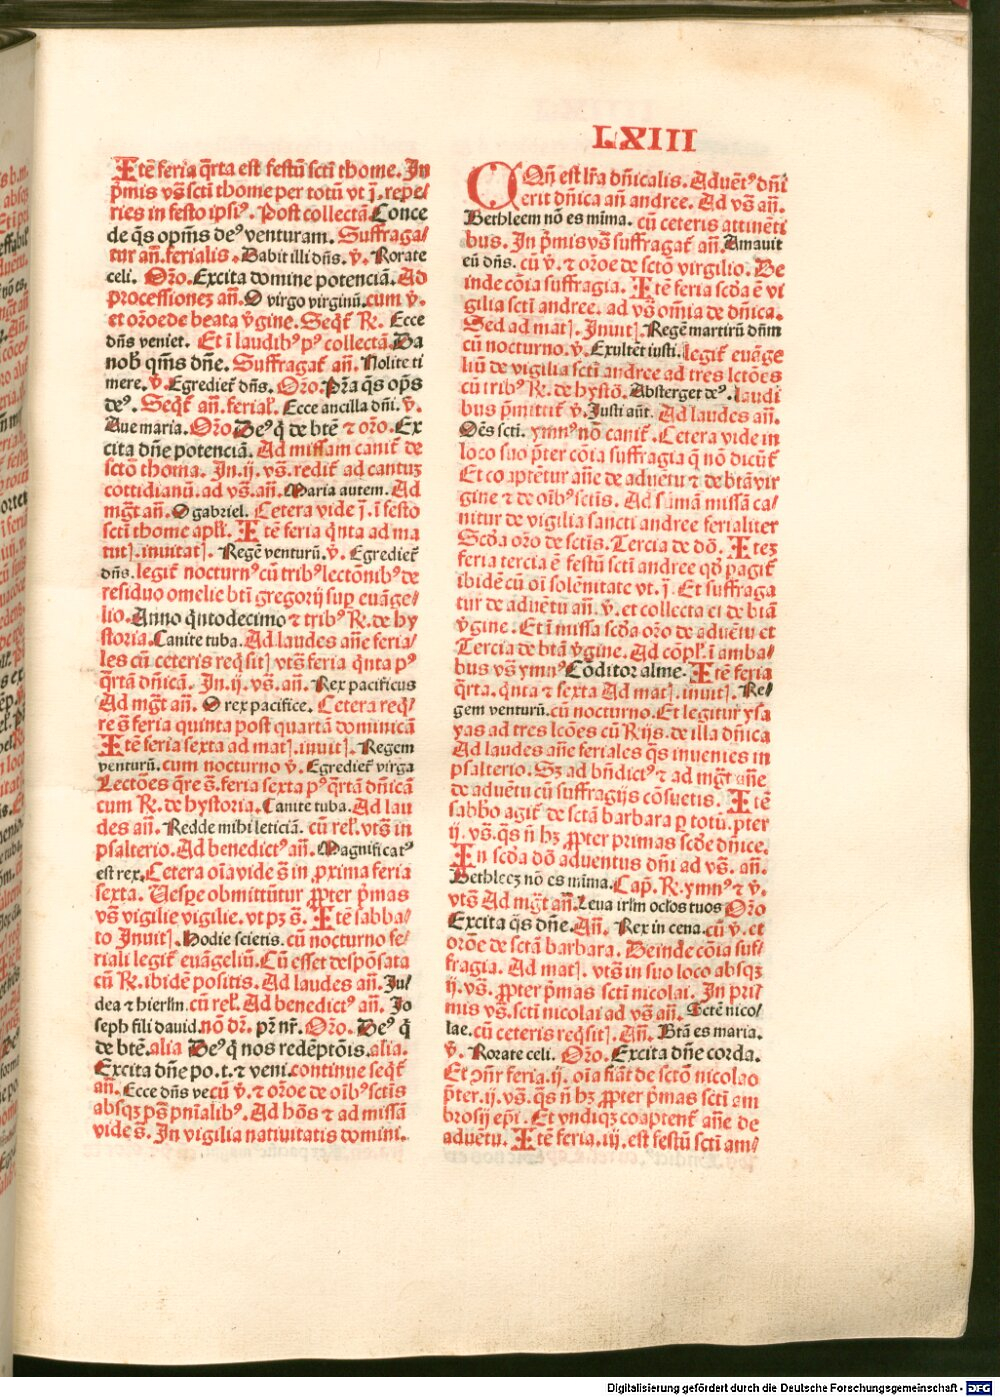 LXIII
Itē feria q̄rta est festū sctī thome. In
p̄mis vs̄ sctī thome per totū vt j̄. repe/
ries in festo ipsiꝰ. Post collectā Conce
de q̄s opm̄s deꝰ venturam. Suffraga/
tur an̄. ferialis. Dabit illi dn̄s. v̄. Rorate
celi. Oro. Excita domine potenciā. Ad
processionez an̄. O virgo virginū. cum v̄.
et oroē de beata v̄gine. Seqt̄ R̄. Ecce
dn̄s veniet. Et ī laudibꝰ pꝰ collectā Da
nob̄ qm̄s dn̄e. Suffragat̄ an̄. Nolite ti
mere. v̄. Egrediet̄ dn̄s. Oro. Pr̄a q̄s op̄s
deꝰ. Seqt̄ an̄. ferial̄. Ecce ancilla dn̄i. v̄.
Aue maria. Oro Deꝰ q̄ de btē ⁊ oro. Ex
cita dn̄e potenciā. Ad missam canit̄ de
sctō thoma. In. ij. vs̄. redit̄ ad cantuz
cottidianū. ad vs̄. an̄. Maria autem. Ad
mḡt an̄. O gabriel. Cetera vide j̄. ī festo
sctī thome apl̄i. Itē feria q̄nta ad ma
tut]. inuitat]. Regē venturū. v̄. Egrediet̄
dn̄s. legit̄ nocturnꝰ cū tribꝰ lectōnibꝰ de
residuo omelie btī gregorij sup euāge/
lio. Anno q̄ntodecimo ⁊ tribꝰ R̄. de hy
storia. Canite tuba. Ad laudes an̄e feria/
les cū ceteris req̄sit] vts̄ feria q̄nta pꝰ
q̄rtā dn̄icā. In. ij. vs̄. an̄. Rex pacificus
Ad mḡt an̄. O rex pacifice. Cetera req̄/
re s̄ feria quinta post quartā dominicā
Itē feria sexta ad mat]. inuit]. Regem
venturū. cum nocturno v̄. Egrediet̄ virga
Lectōes q̄re s̄. feria sexta pꝰ q̄rtā dn̄icā
cum R̄. de hystoria. Canite tuba. Ad lau
des an̄. Redde mihi leticiā. cū rel̄. vts̄ in
psalterio. Ad benedictꝰ an̄. Magnificatꝰ
est rex. Cetera oīa vide s̄ in p̱xima feria
sexta. Vespe obmittūtur p̱pter p̄mas
vs̄ vigilie vigilie. vt pz s̄. Itē sabba/
to Inuit]. Hodie scietis. cū nocturno fe/
riali legit̄ euāgeliū. Cū esset despōsata
cū R̄. ibidē positis. Ad laudes an̄. Ju/
dea ⁊ hierlm̄. cū rel̄. Ad benedictꝰ an̄. Jo
seph fili dauid. nō dr̄. pr̄ nr̄. Oro. Deꝰ q̄
de btē. alia Deꝰ q̄ nos redēptōis. alia.
Excita dn̄e po. t. ⁊ veni. continue seqt̄
an̄. Ecce dn̄s ve cū v̄. ⁊ oroē de oībꝰ sctīs
absqz ps̄ pn̄ialibꝰ. Ad hōs ⁊ ad missā
vide s̄. In vigilia natiuitatis domini.
QQn̄ est lr̄a dn̄icalis. Aduētꝰ dn̄i
erit dn̄ica an̄ andree. Ad vs̄ an̄.
Bethleem nō es mīma. cū ceteris attinēti
bus. In p̄mis vs̄ suffragat̄ an̄. Amauit
eū dn̄s. cū v̄. ⁊ oroē de sctō virgilio. De
inde cōia suffragia. Itē feria scd̄a ē vi
gilia sctī andree. ad vs̄ om̄ia de dn̄ica.
Sed ad mat]. Inuit]. Regē martirū dn̄m
cū nocturno. v̄. Exultēt iusti. legit̄ euāge
liū de vigilia sctī andree ad tres lctōes
cū tribꝰ R̄. de hystō. Absterget deꝰ. laudi
bus p̄mittit̄ v̄. Justi aūt. Ad laudes an̄.
Oēs scti. ymnꝰ nō canit̄. Cetera vide in
loco suo p̄ter cōia suffragia q̄ nō dicūt̄
Et coaptētur an̄e de aduētu ⁊ de btā vir
gine ⁊ de oībꝰ sctīs. Ad sūmā missā ca/
nitur de vigilia sancti andree ferialiter
Scd̄a oro de sctīs. Tercia de dō. Itez
feria tercia ē festū sctī andree qd̄ pagit̄
ibidē cū oī solēnitate vt. j̄. Et suffraga
tur de aduētu an̄. v̄. et collecta ei de btā
v̄gine. Et ī missa scd̄a oro de aduētu et
Tercia de btā v̄gine. Ad cōpl̄. ī amba/
bus vs̄ ymnꝰ Cōditor alme. Itē feria
q̄rta. q̄nta ⁊ sexta Ad mat]. inuit]. Re/
gem venturū. cū nocturno. Et legitur ysa
yas ad tres lcōes cū R̄ijs. de illa dn̄ica
Ad laudes an̄e feriales q̄s inuenies in
psalterio. Sz ad bn̄dictꝰ ⁊ ad mḡt an̄e
de aduētu cū suffragijs cōsuetis. Itē
sabb̄o agit̄ de sctā barbara p totū. pter
ij. vs̄. q̄s n̄ hz p̱pter primas scd̄e dn̄ice.
In scd̄a dō aduentus dn̄i ad vs̄. an̄.
Bethleez nō es mīma. Cap̄. R̄. ymnꝰ ⁊ v̄.
vts̄ Ad mḡt an̄. Leua irl̄m oclos tuos Oro
Excita q̄s dn̄e. An̄. Rex in cena. cū v̄. et
orōe de sctā barbara. Deinde cōia suf/
fragia. Ad mat]. vts̄ in suo loco absqz
ij. vs̄. p̱pter p̄mas sctī nicolai. In pri/
mis vs̄. sctī nicolai ad vs̄ an̄. Bctē nico/
lae. cū ceteris req̄sit]. An̄. Btā es maria.
v̄. Rorate celi. Oro. Excita dn̄e corda.
Et ꝯn̄r feria. ij. oīa fiāt de sctō nicolao
p̄ter. ij. vs̄. q̄s n̄ hz p̱pter p̄mas sctī am
brosij epī. Et vndiqz coaptent̄ an̄e de
aduētu. Itē feria. iij. est festū sctī am/
Digitalisierung gefördert durch die Deutsche Forschungsgemeinschaft - DFG